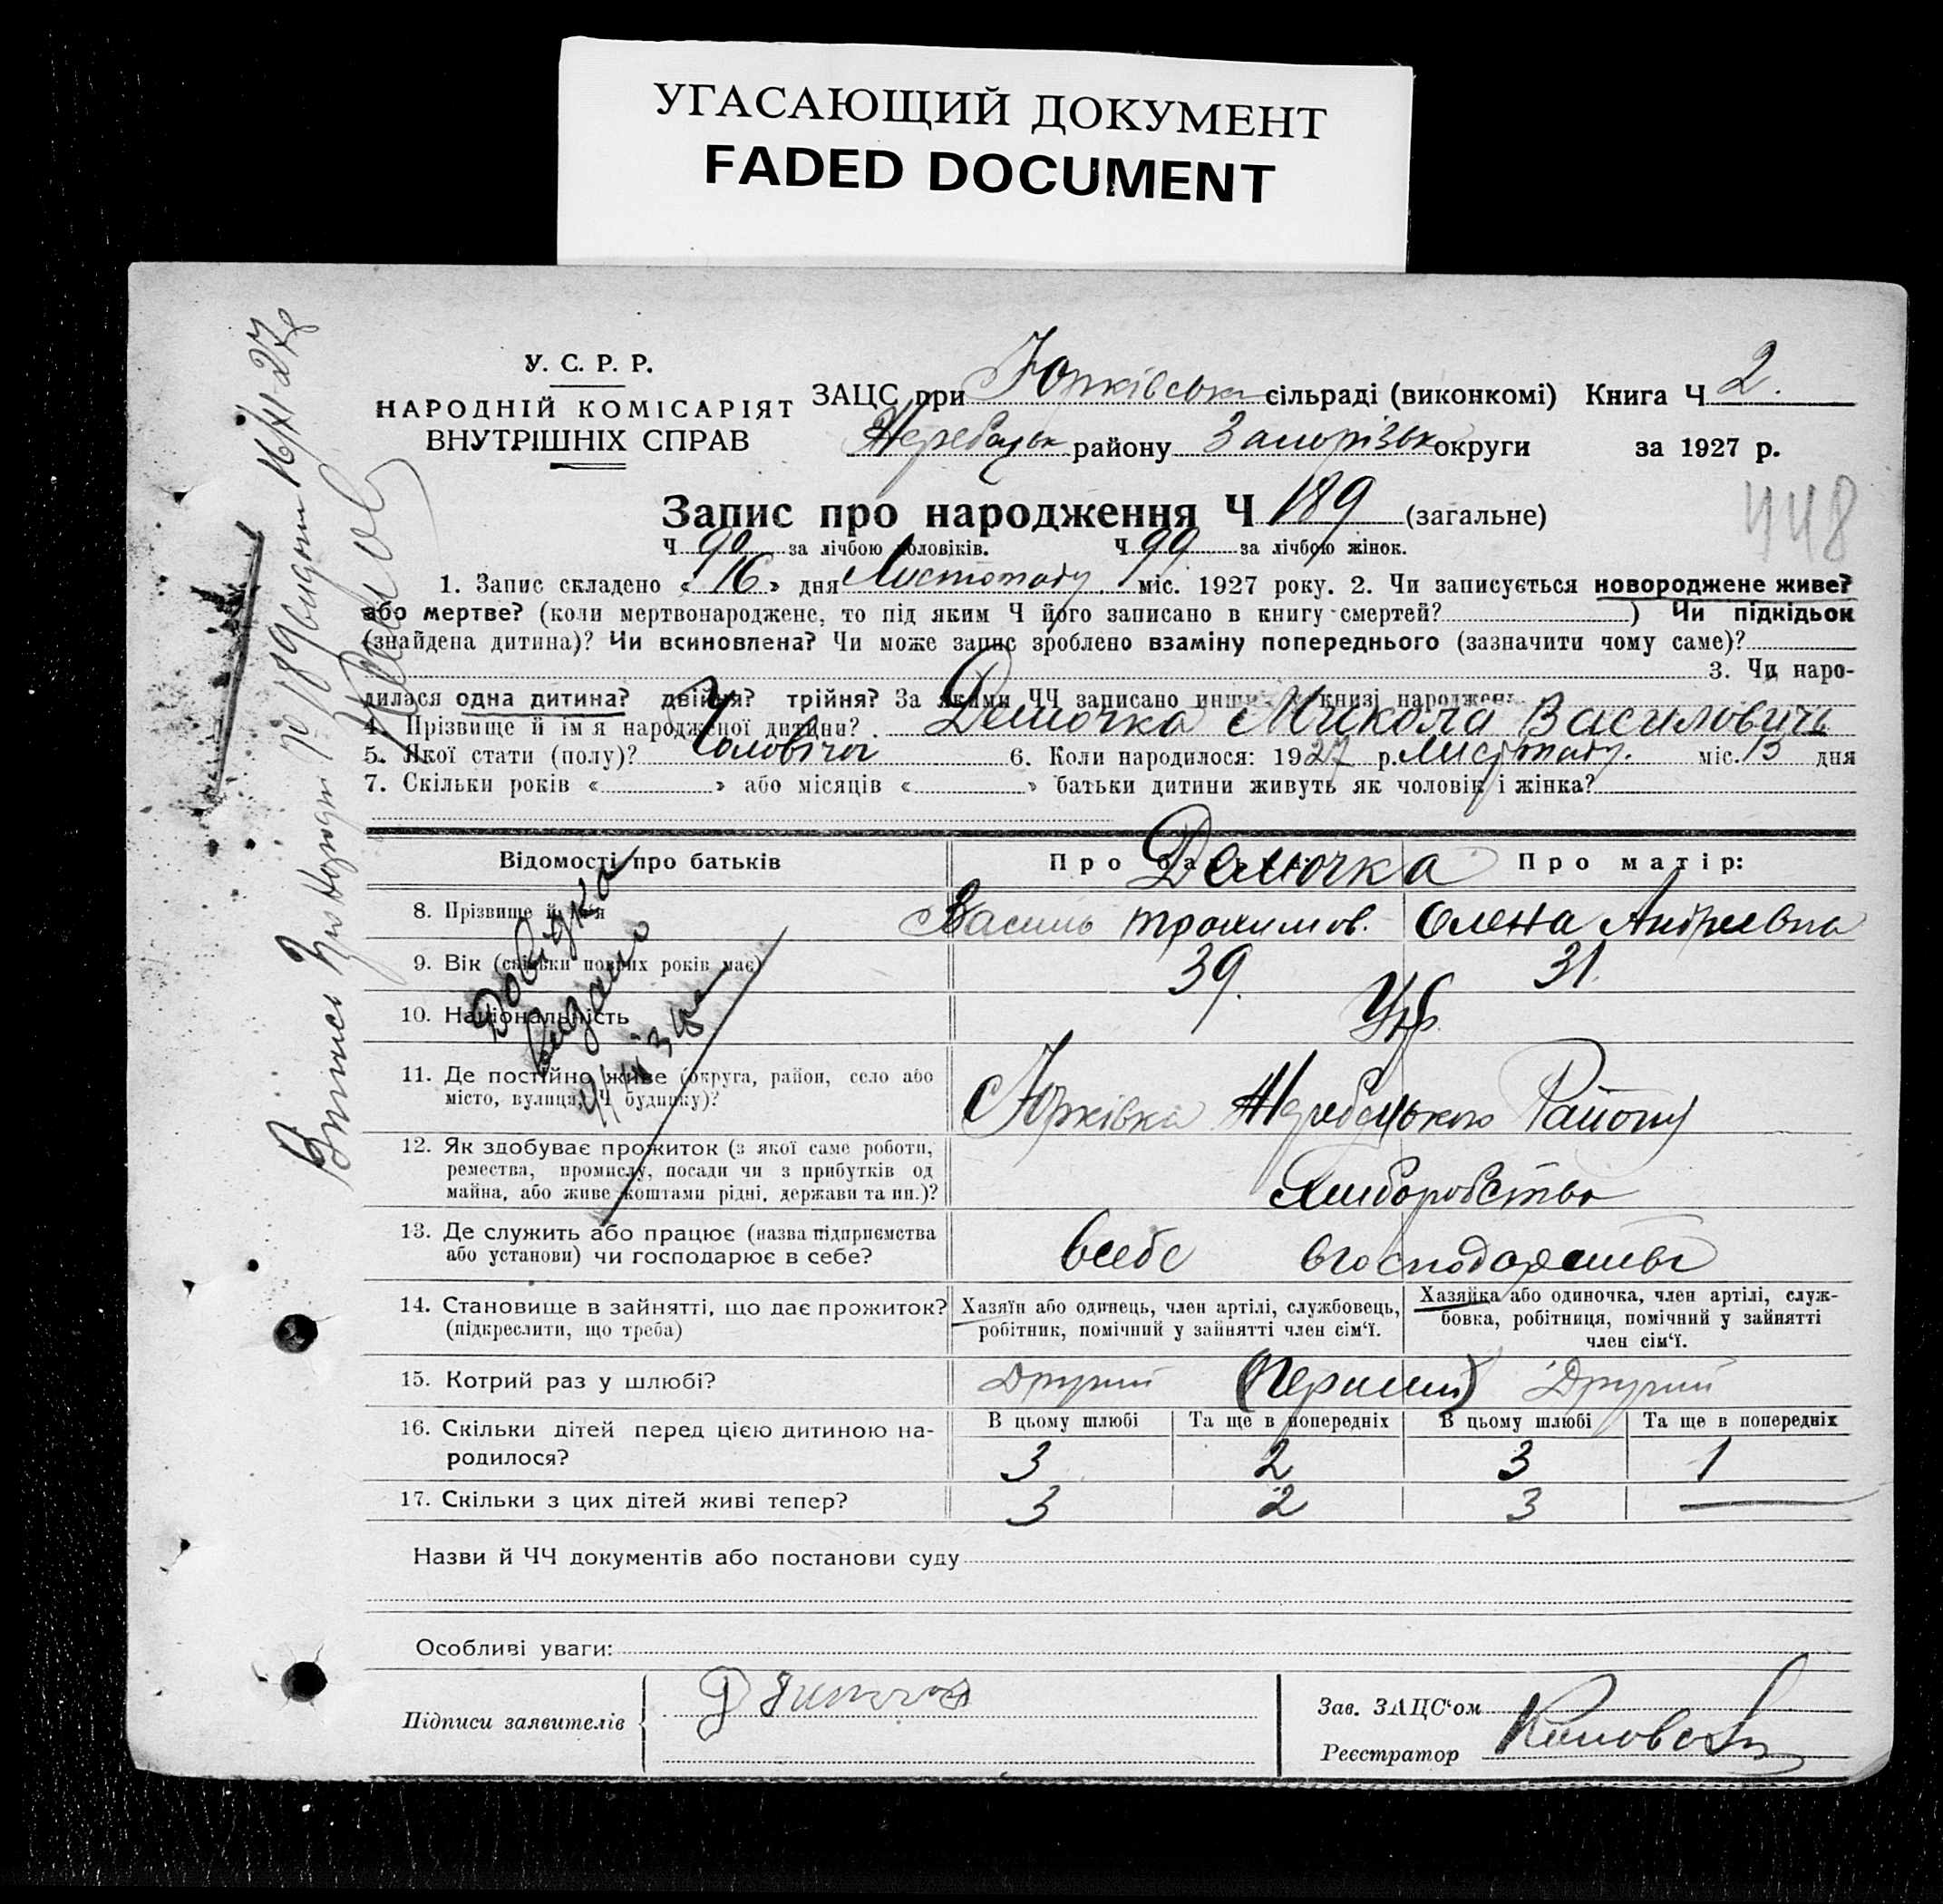 УГАСАЮЩИЙ ДОКУМЕНТ
FADED DOCUMENT
У. С. Р. Р.
НАРОДНІЙ КОМІСАРІЯТ
ВНУТРІШНІХ СПРАВ
ЗАЦС при Юрківськ сільраді (виконкомі) Книга Ч 2.
Жеребецьк району Запорізьк округи за 1927 р.
Запис про народження Ч 189 (загальне)
448
Ч 90 за лічбою чоловіків. Ч 99 за лічбою жінок.
1. Запис складено « 16 » дня Листопаду міс. 1927 року. 2. Чи записується новороджене живе?
або мертве? (коли мертвонароджене, то під яким Ч його записано в книгу смертей? ) Чи підкідьок
(знайдена дитина)? Чи всиновлена? Чи може запис зроблено взаміну попереднього (зазначити чому саме)?
3. Чи наро-
дилася одна дитина? двійня? трійня? За якими ЧЧ записано инших в книзі народжень
4. Прізвище й ім'я народженої дитини? Демочка Микола Василовичь
5. Якої стати (полу)? Чоловіча 6. Коли народилося: 1927 р. Листопаду. міс. 13 дня
7. Скільки років « » або місяців « » батьки дитини живуть як чоловік і жінка?
Відомості про батьків Про батька: Про матір:
Демочка
8. Прізвище й ім'я Василь Трохимов. Олена Андреевна
9. Вік (скільки повних років має) 39. 31.
10. Національність Укр.
11. Де постійно живе (округа, район, село або
місто, вулиця, Ч будинку)?
Юрківка Жеребецького Району
12. Як здобуває прожиток (з якої саме роботи,
ремества, промислу, посади чи з прибутків од
майна, або живе коштами рідні, держави та ин.)?
Хлиборобство
13. Де служить або працює (назва підприємства
або установи) чи господарює в себе?
всебе вгосподарстви
14. Становище в зайнятті, що дає прожиток?
(підкреслити, що треба)
Хазяїн або одинець, член артілі, службовець,
робітник, помічний у зайнятті член сім'ї.
Хазяйка або одиночка, член артілі, служ-
бовка, робітниця, помічний у зайнятті
член сім'ї.
15. Котрий раз у шлюбі? Другий (Перший) Другий
16. Скільки дітей перед цією дитиною на-
родилося?
В цьому шлюбі Та ще в попередніх В цьому шлюбі Та ще в попередніх
3 2 3 1
17. Скільки з цих дітей живі тепер? 3 2 3 —
Назви й ЧЧ документів або постанови суду
Особливі уваги:
Підписи заявителів
Зав. ЗАЦС'ом
Реєстратор
Довідка
видано
Випись про народж. № 189 видано 16/XI-27